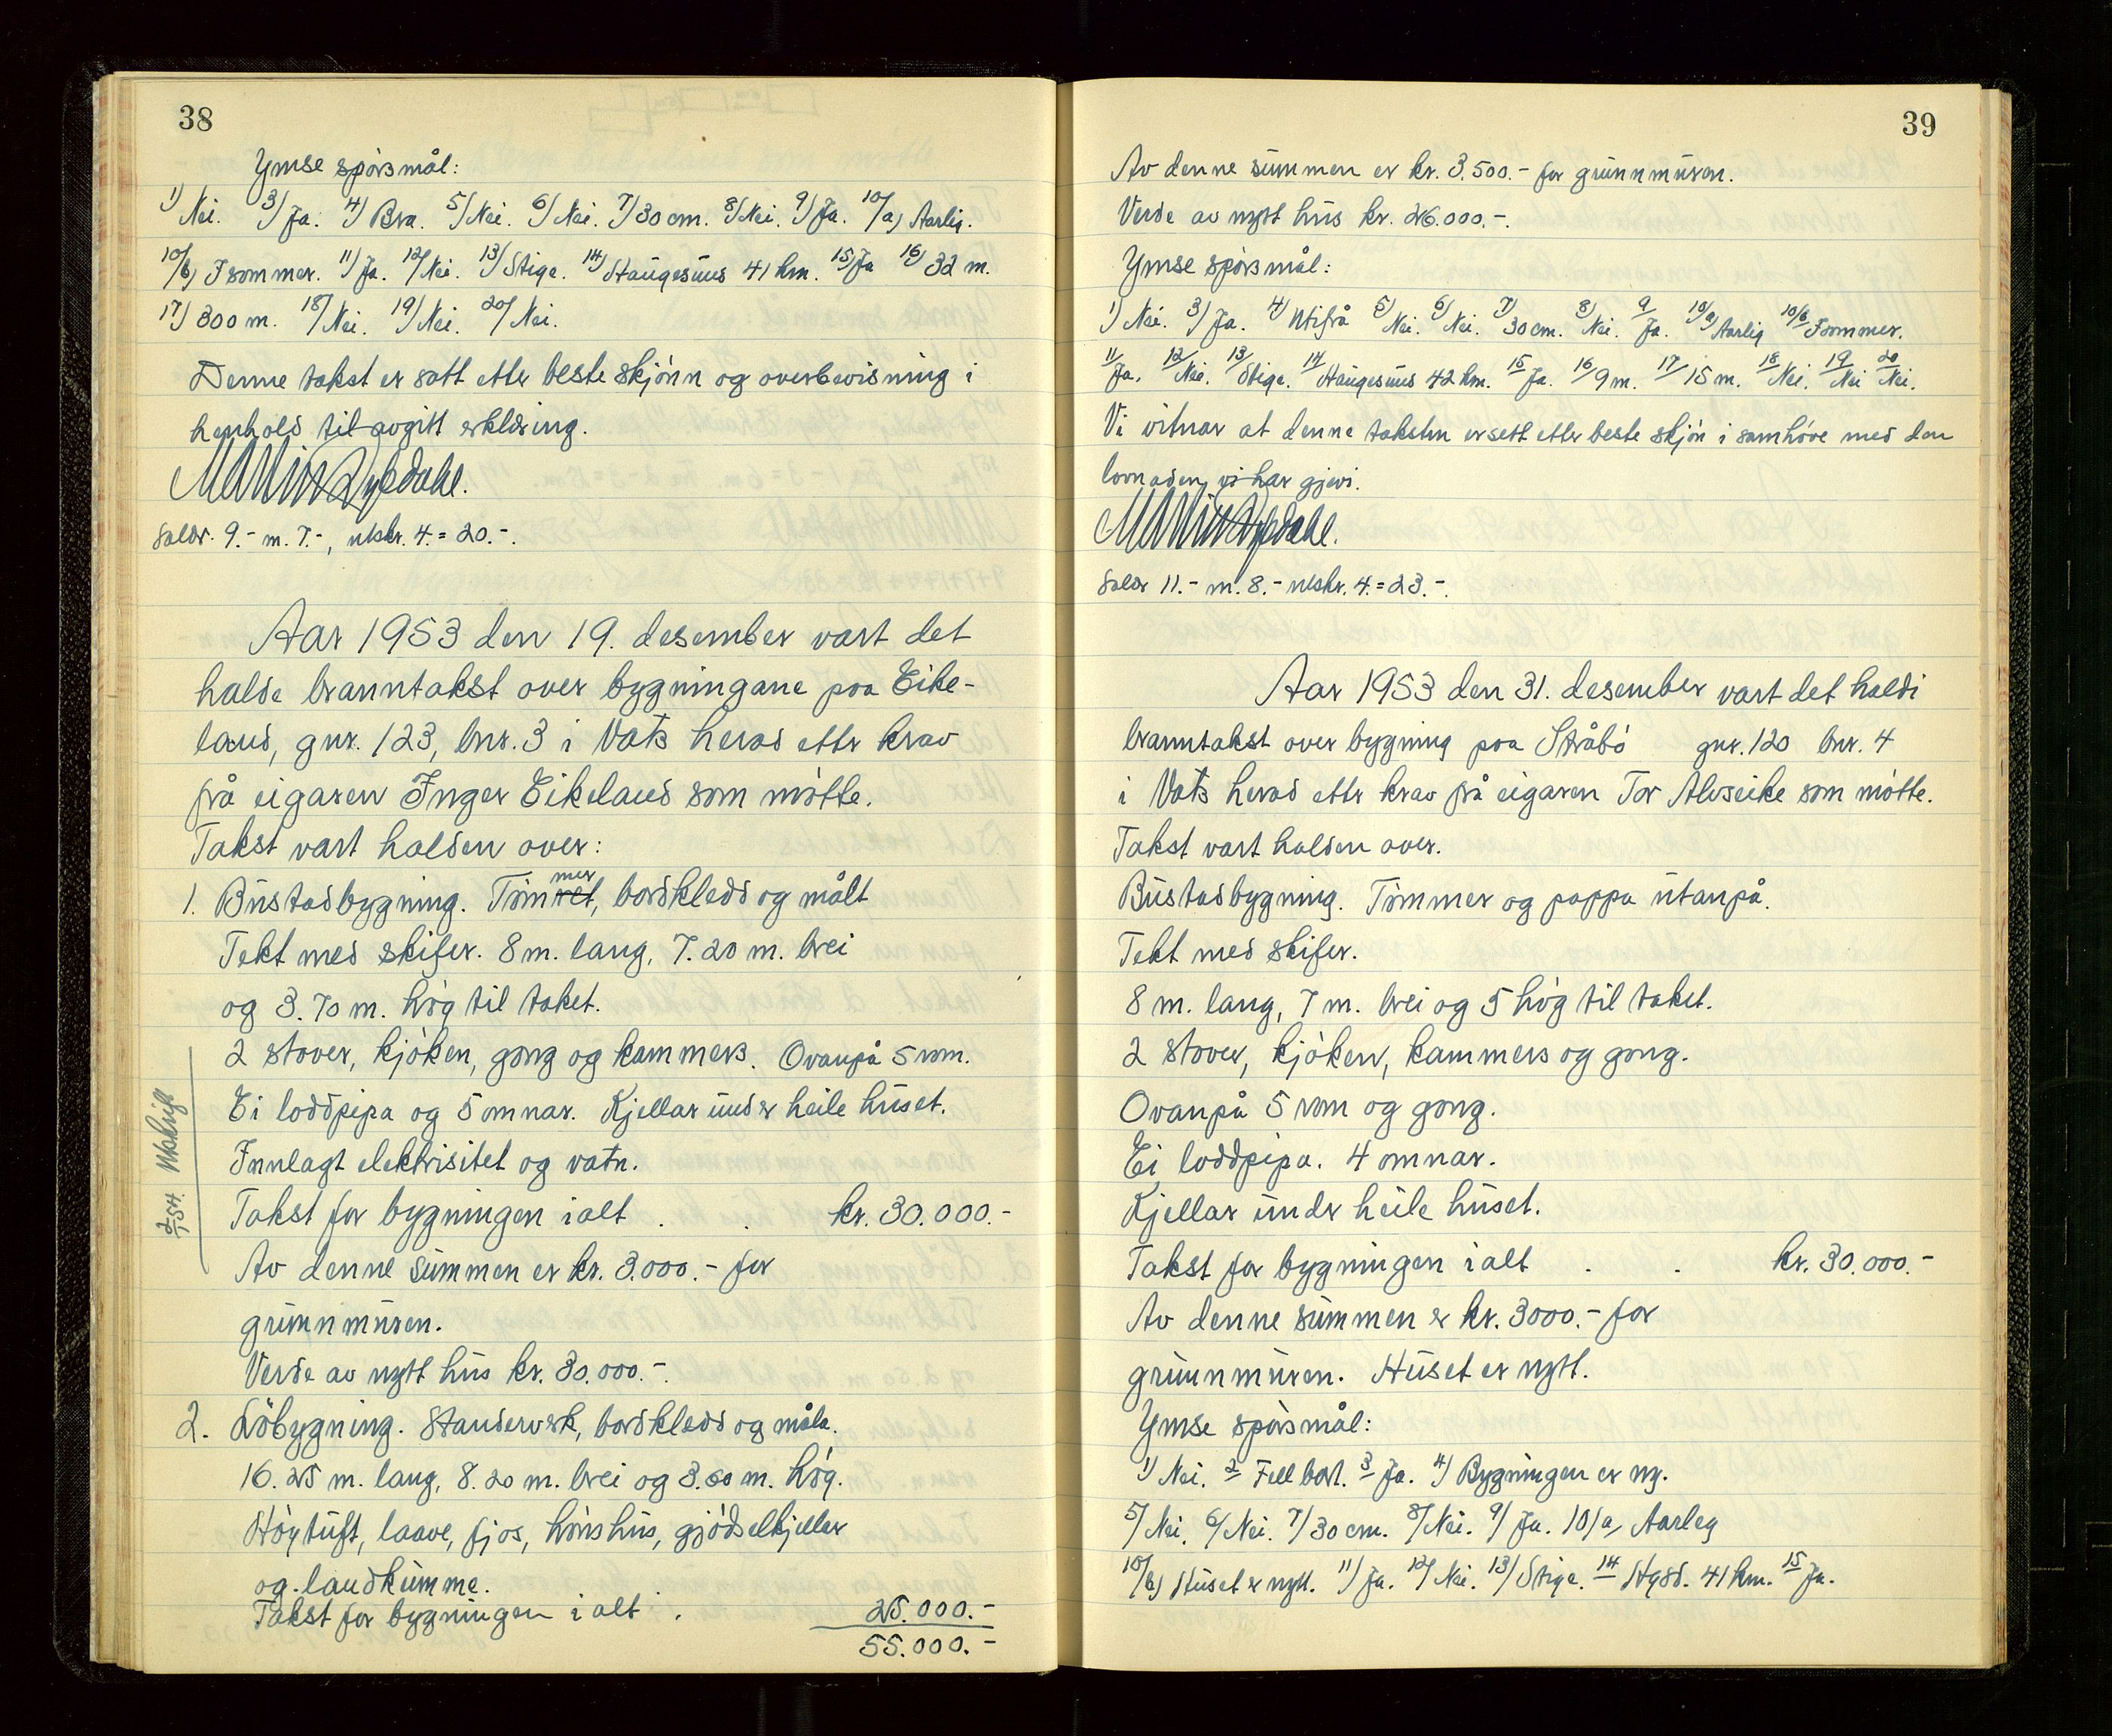 38
Ymse spørsmål:
1) Nei. 3) Ja. 4) Bra. 5) Nei. 6) Nei. 7) 30 cm. 8) Nei. 9) Ja. 10) a) Aarlig.
10) b) I sommer. 11) Ja. 12) Nei. 13) Stige. 14) Haugesund 41 km. 15) Ja 16) 32 m.
17) 300 m. 18) Nei. 19) Nei. 20) Nei.
Denne takst er satt etter beste skjønn og overbevisning i
henhold til avgitt erklæring.
Saldr. 9.- m. 7.-, utskr. 4.= 20.-.
Aar 1953 den 19. desember vart det
halde branntakst over bygningane paa Eike-
land, gnr. 123, bnr. 3 i Vats herad etter krav
frå eigaren Inger Eikeland som møtte.
Takst vart halden over:
1. Bustadbygning. Tømret mer, bordkledd og målt
Tekt med skifer. 8 m. lang, 7.20 m. brei
og 3.70 m. høg til taket.
2 stover, kjøken, gong og kammers. Ovanpå 5 rom.
Ei loddpipa og 5 omnar. Kjellar under heile huset.
Innlagt elektrisitet og vatn.
Takst for bygningen ialt . . kr. 30.000.-
Av denne summen er kr. 3.000.- for
grunnmuren.
Verde av nytt hus kr. 30.000.-.
2. Løbygning. Standerverk, bordkledd og måla.
16.25 m. lang, 8.20 m. brei og 3.60 m. høg.
Høytuft, laave, fjos, hønshus, gjødselkjellar
og landkumme.
Takst for bygningen ialt . 25.000.-
55.000.-
2/1 54. Utskrift
39
Av denne summen er kr. 3.500.- for grunnmuren.
Verde av nytt hus kr. 26.000.-.
Ymse spørsmål:
1) Nei. 3) Ja. 4) Utifrå 5) Nei. 6) Nei. 7) 30 cm. 8) Nei. 9) Ja. 10) a) Aarlig 10) b) I sommer.
11) Ja. 12) Nei. 13) Stige. 14) Haugesund 42 km. 15) Ja. 16) 9 m. 17) 15 m. 18) Nei. 19) Nei 20) Nei.
Vi vitnar at denne taksten er sett etter beste skjøn i samhøve med den
lovnaden vi har gjevi.
Saldr 11.- m. 8.- utskr. 4.= 23.-.
Aar 1953 den 31. desember vart det haldi
branntakst over bygning paa Stråbø gnr. 120 bnr. 4
i Vats herad etter krav frå eigaren Tor Alvseike som møtte.
Takst vart halden over.
Bustadbygning. Tømmer og pappa utanpå.
Tekt med skifer.
8 m. lang, 7 m. brei og 5 høg til taket.
2 stover, kjøken, kammers og gong.
Ovanpå 5 rom og gong.
Ei loddpipa. 4 omnar.
Kjellar under heile huset.
Takst for bygningen ialt . . kr. 30.000.-
Av denne summen er kr. 3000.- for
grunnmuren. Huset er nytt.
Ymse spørsmål:
1) Nei. 2 Fell bort. 3 Ja. 4) Bygningen er ny.
5) Nei. 6) Nei. 7) 30 cm. 8) Nei. 9) Ja. 10) a) Aarleg
10) b) Huset er nytt. 11) Ja. 12) Nei. 13) Stige. 14 Hgsd. 41 km. 15 Ja.